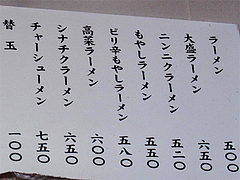 ラーメン 五〇〇
大盛ラーメン 六五〇
ニンニクラーメン 五二〇
もやしラーメン 五五〇
ピリ辛もやしラーメン 五八〇
高菜ラーメン 六〇〇
シナチクラーメン 六五〇
チャーシューメン 七五〇
替玉 一〇〇